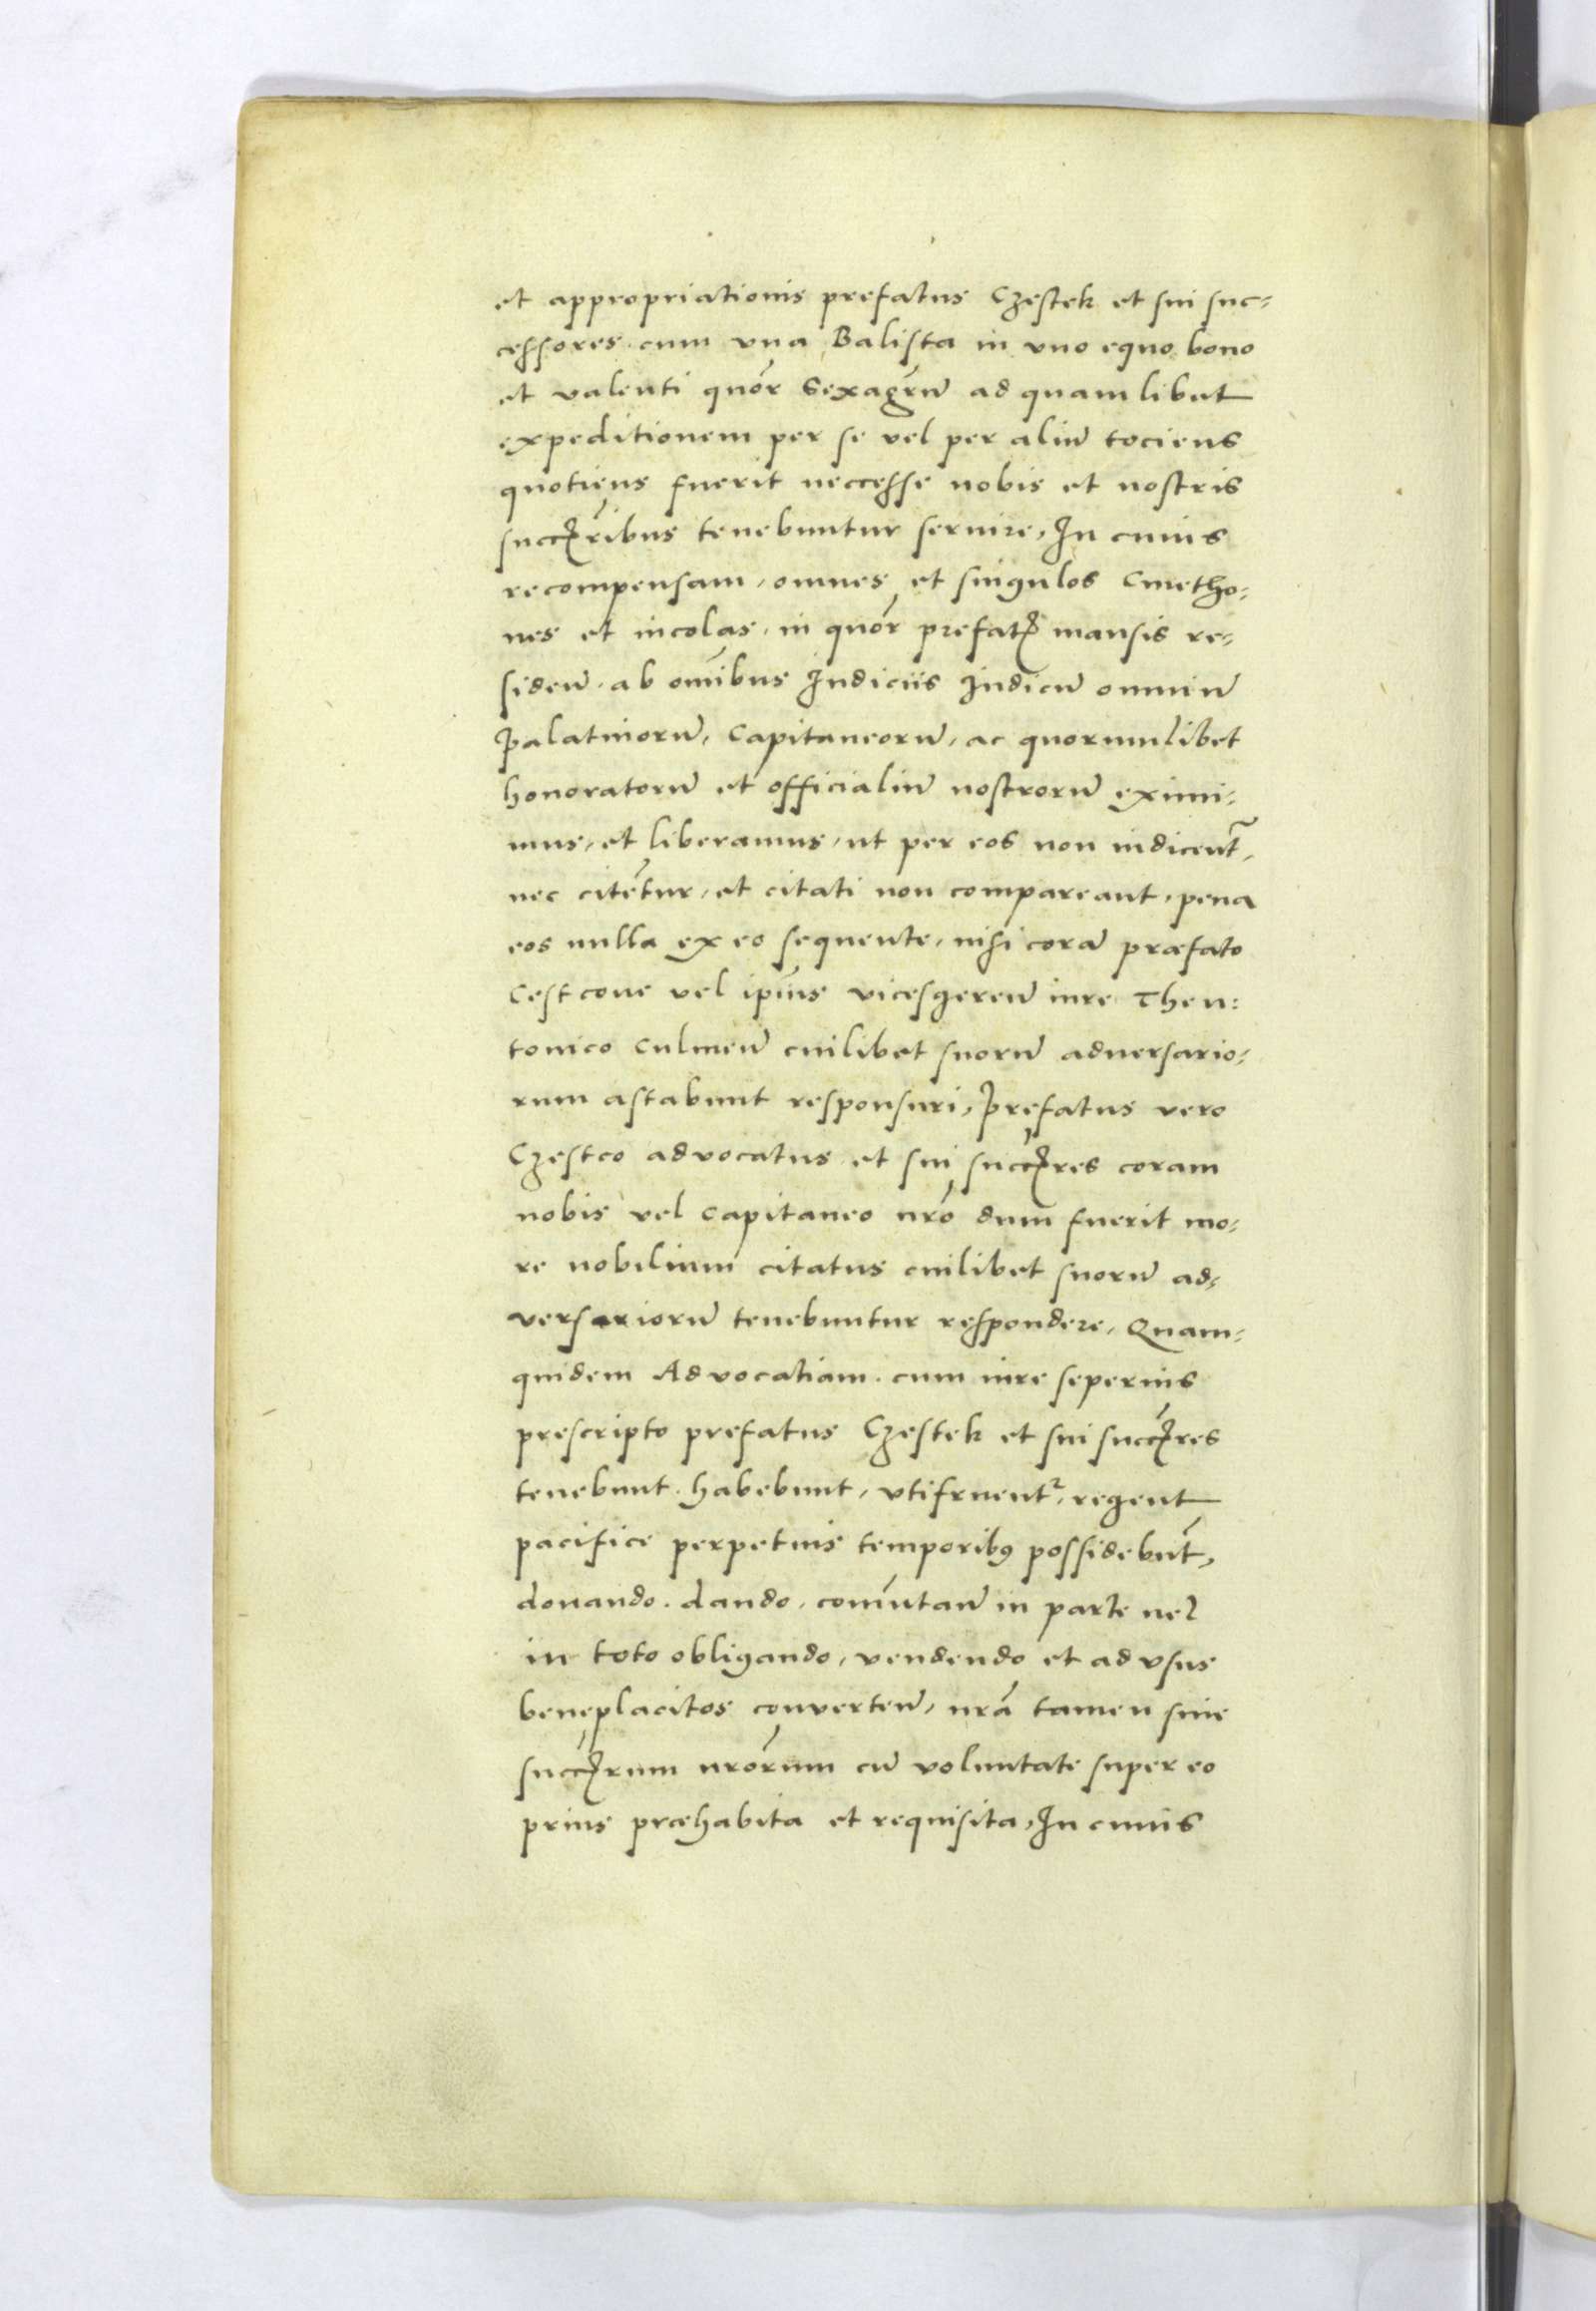 et appropriationis prefatus Czestek et sui suc-
cessores cum vna Balista in vno equo bono
et valenti quor̄ Sexagēū ad quamlibet
expeditionem per se vel per aliū tociens
quotiens fuerit neccesse nobis et nostris
succꝫribus tenebuntur seruire, In cuius
recompensam, omnes et singulos Cmetho-
nes et incolas, in quor̄ prefatꝫ mansis re-
sideñ. ab om̄ibus Iudiciis Iudicū omniū
Palatinorū, Capitaneorū, ac quorumlibet
honoratorū et officialiū nostrorū eximi-
mus, et liberamus, ut per eos non iudicent̄,
nec citēntur, et citati non compareant, pena
eos nulla ex eo sequente, nisi corā præfato
Cestcone vel ip̄ius vicesgereñ iure Theu-
tonico Culmeñ cuilibet suorū aduersario-
rum astabunt responsuri, Prefatus vero
Czestco advocatus et sui succꝫres coram
nobis vel capitaneo nr̄o dum fuerit mo-
re nobilium citatus cuilibet suorū ad-
versariorū tenebuntur respondere, Quam-
quidem Advocatiam. cum iure seperius
prescripto prefatus Czestek et sui succꝫres
tenebunt. habebunt, vtifruent², regent
pacifice perpetuis temporibꝰ possidebūt,
donando. dando, com̄utañ in parte uel
in toto obligando, vendendo et ad vsus
beneplacitos converteñ, nr̄a tamen sine
succꝫrum nr̄orum cū voluntate super eo
prius præhabita et requisita, In cuius